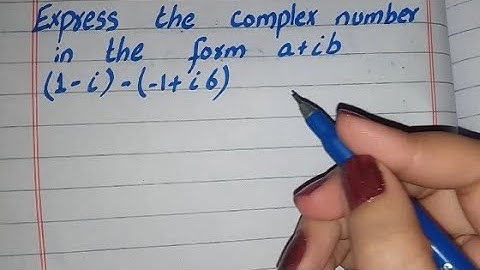 Express the complex number
in the form a+ib
(1-i)-(-1+i6)